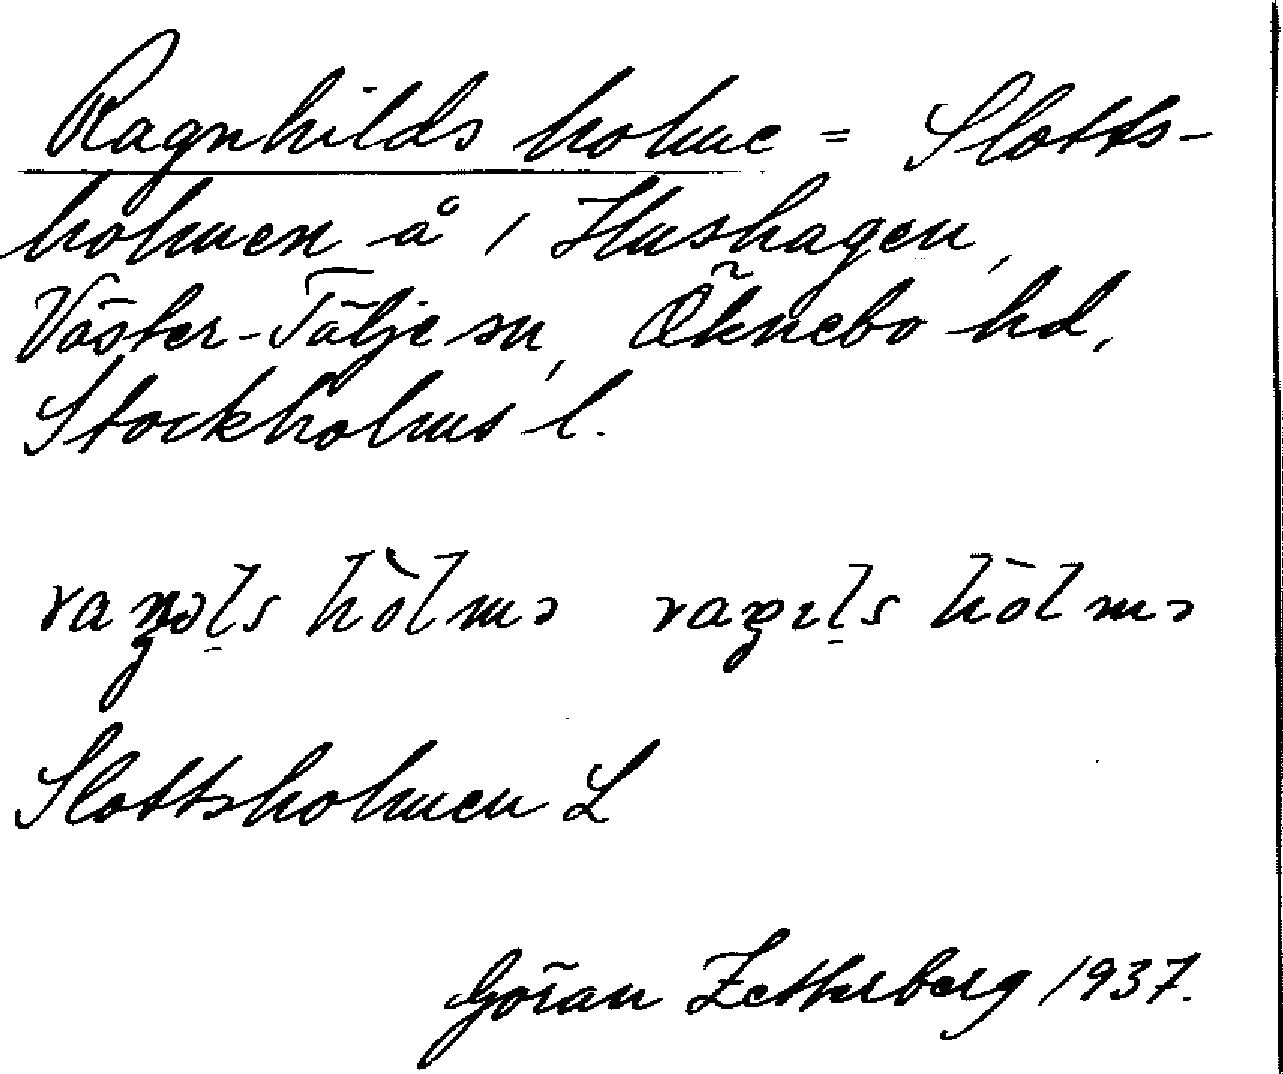 Ragnhilds holme = Slotts-
holmen å / Hushagen,
Väster-Tälje sn, Öknebo hd,
Stockholms l.
hòlmə hòlmə
Slottsholmen L
Göran Zetterberg 1937.